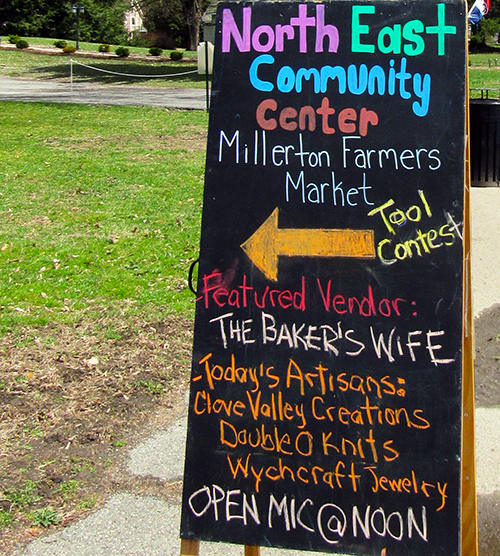 North East
Community
Center
Millerton Farmers
Market
Tool
Contest
-Featured Vendor:
THE BAKER'S WIFE
-Today's Artisans:
Clove Valley Creations
Double O Knits
Wychcraft Jewelry
OPEN MIC@NOON